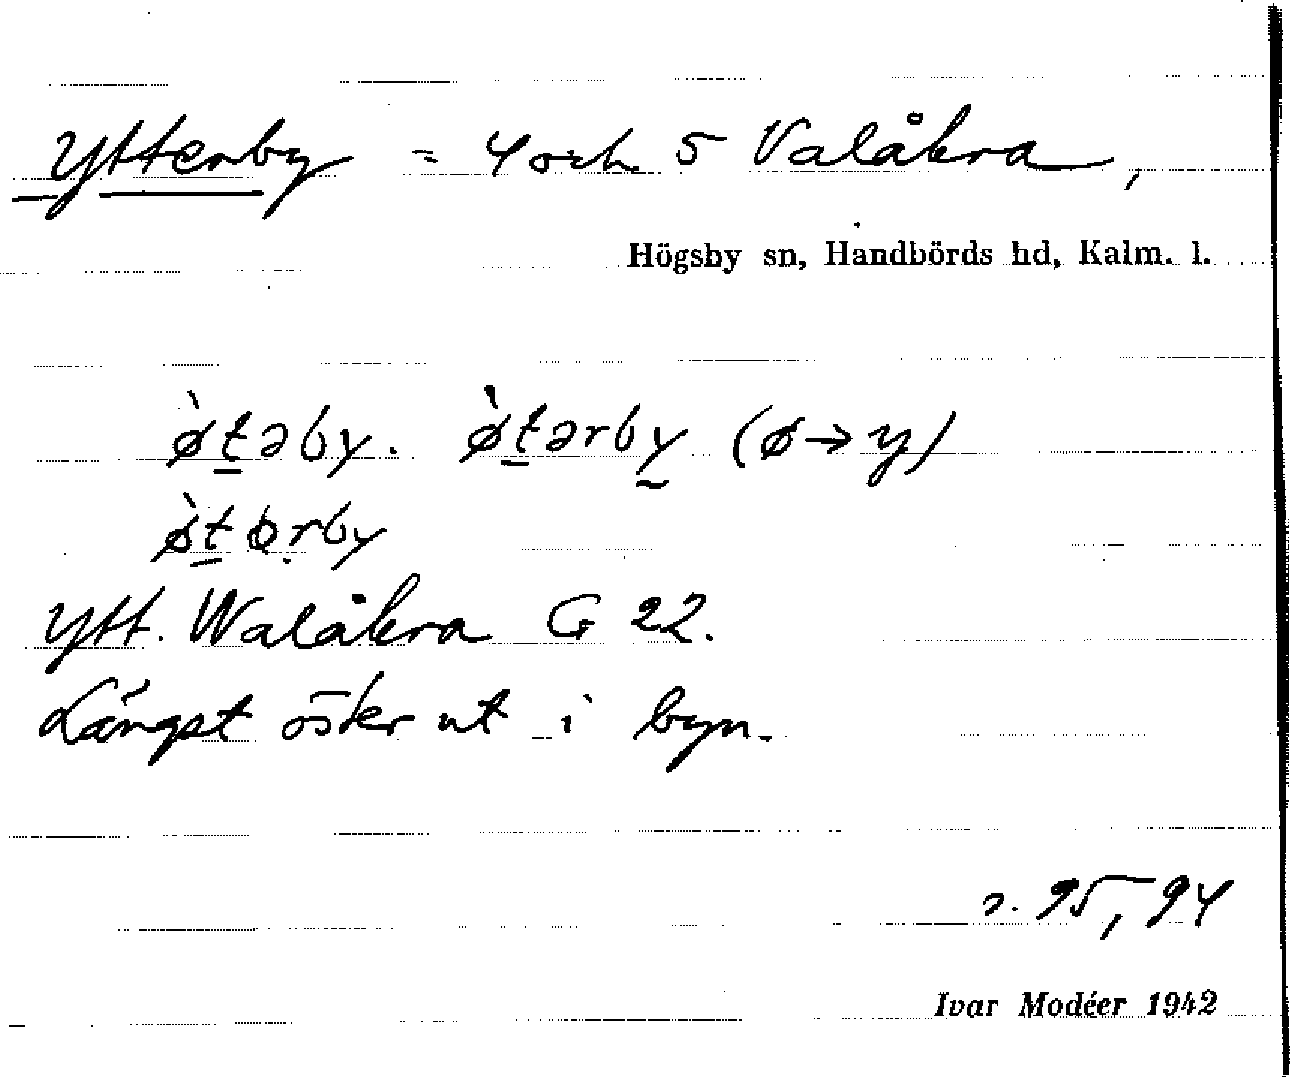 Ytterby = 4 och 5 Valåkra,
Högsby sn, Handbörds hd, Kalm. l.
ø̀t̲əby. ø̀t̲ərby̰ (ø→y)
ø̀t̲ɵṛby
Ytt. Walåkra G 22.
Längst öster ut i byn.
s. 95, 94
Ivar Modéer 1942